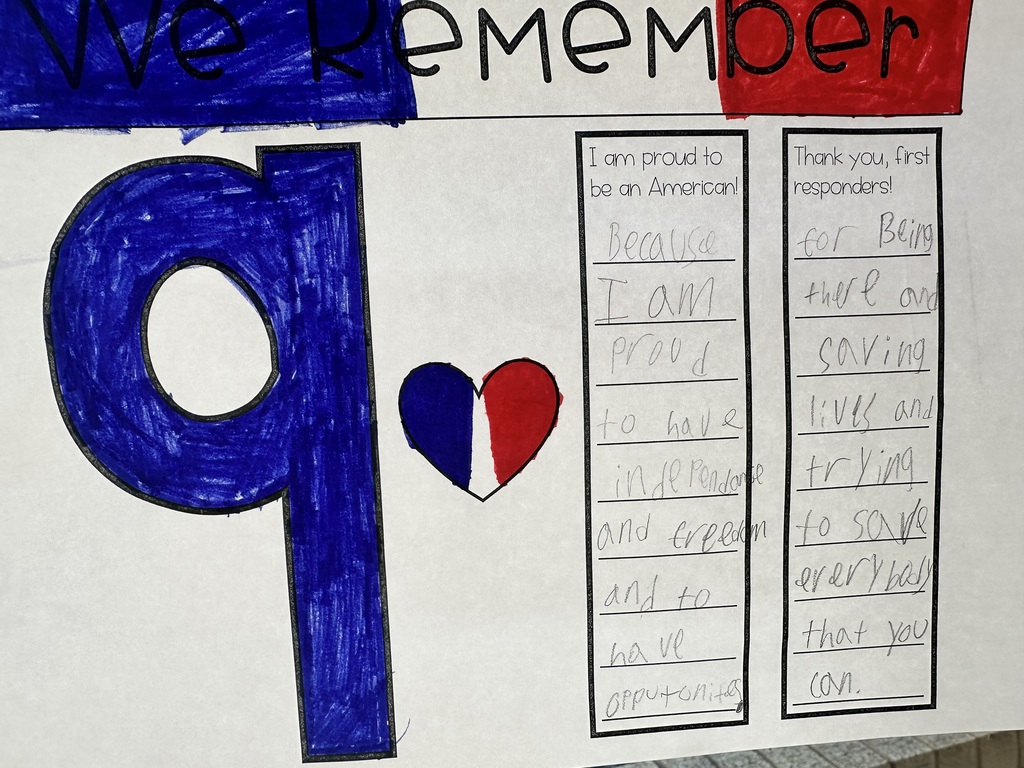 We Remember
9
I am proud to
be an American!
Because
I am
proud
to have
independanse
and freedom
and to
have
opputunites
Thank you, first
responders!
for Being
there and
saving
lives and
trying
to save
everybody
that you
can.